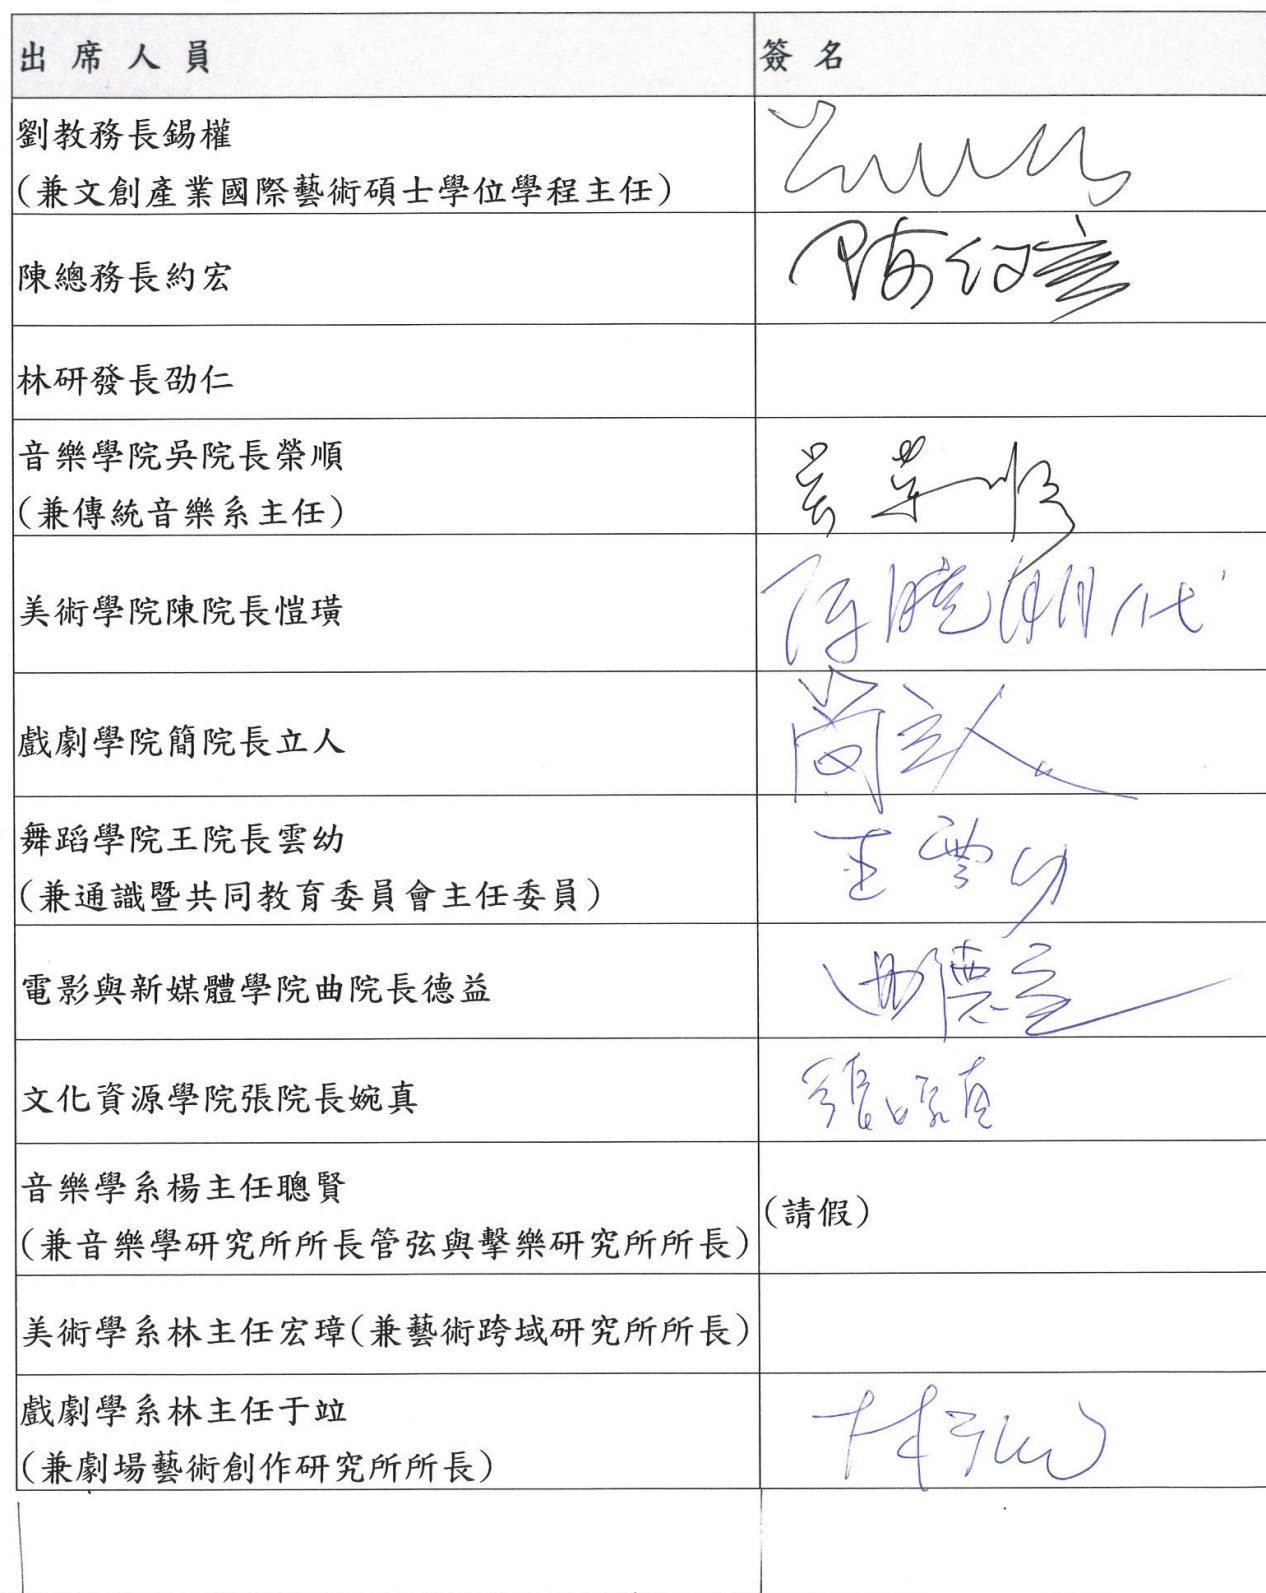 出席人員 簽名
劉教務長錫權
(兼文創產業國際藝術碩士學位學程主任)
陳總務長約宏 陳約宏
林研發長劭仁
音樂學院吳院長榮順 吳榮順
(兼傳統音樂系主任)
美術學院陳院長愷璜 陳曉朋代
戲劇學院簡院長立人 簡立人
舞蹈學院王院長雲幼 王雲幼
(兼通識暨共同教育委員會主任委員)
電影與新媒體學院曲院長德益 曲德益
文化資源學院張院長婉真 張婉真
音樂學系楊主任聰賢 (請假)
(兼音樂學研究所所長管弦與擊樂研究所所長)
美術學系林主任宏璋(兼藝術跨域研究所所長)
戲劇學系林主任于竝 林于竝
(兼劇場藝術創作研究所所長)